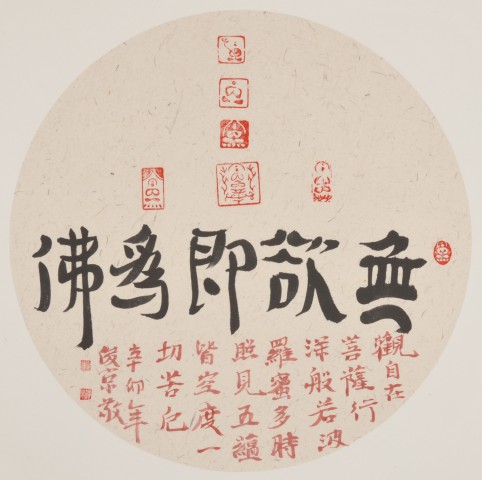 無欲即爲佛
觀自在
菩薩行
深般若波
羅蜜多時
照見五蘊
皆空度一
切苦厄
辛卯年
京敬